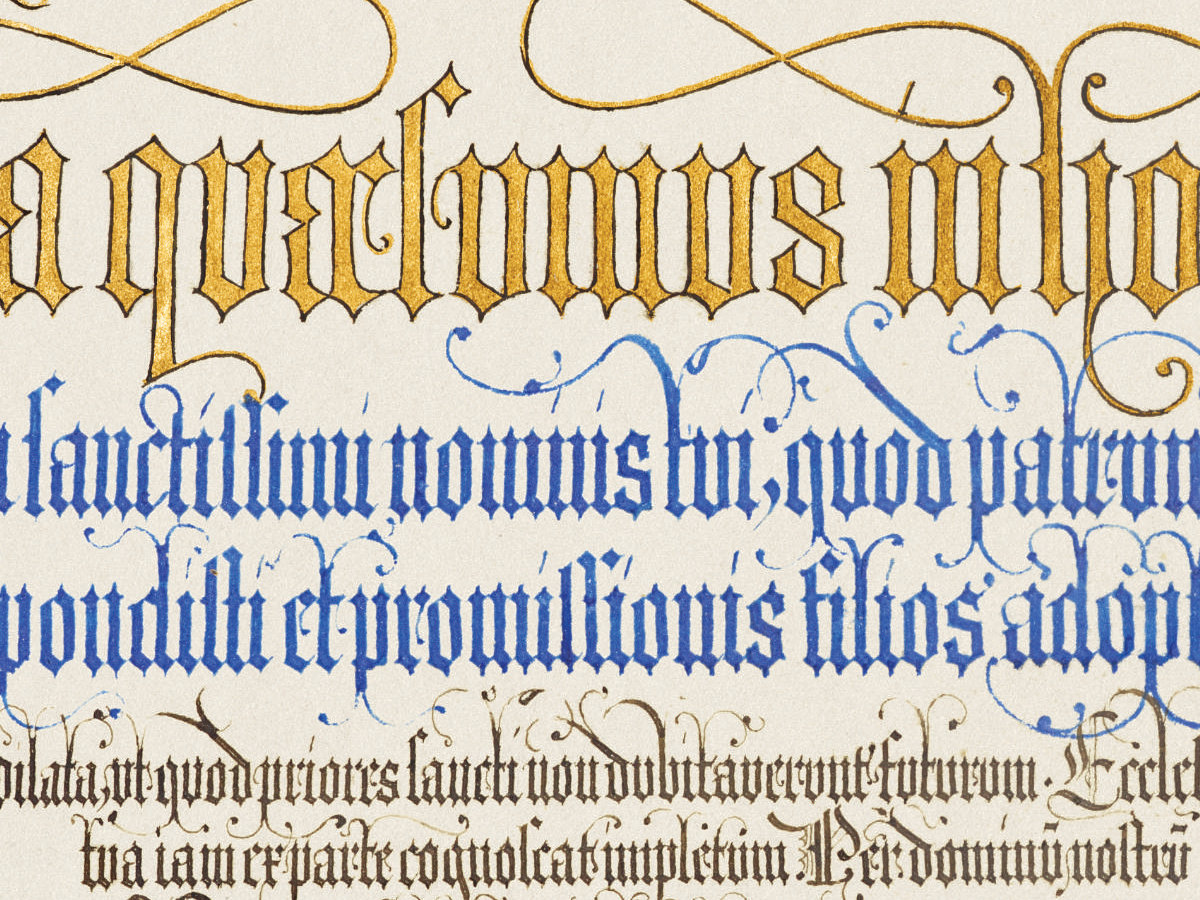 a quæsumus in ho
sanctissimi nominis tui, quod patrum
pondisti et promissionis filios adop
dilata, ut quod priores sancti non dubitaverunt futurum. Eccles
tua iam ex parte cognoscat impletum. Per dominū nostrū